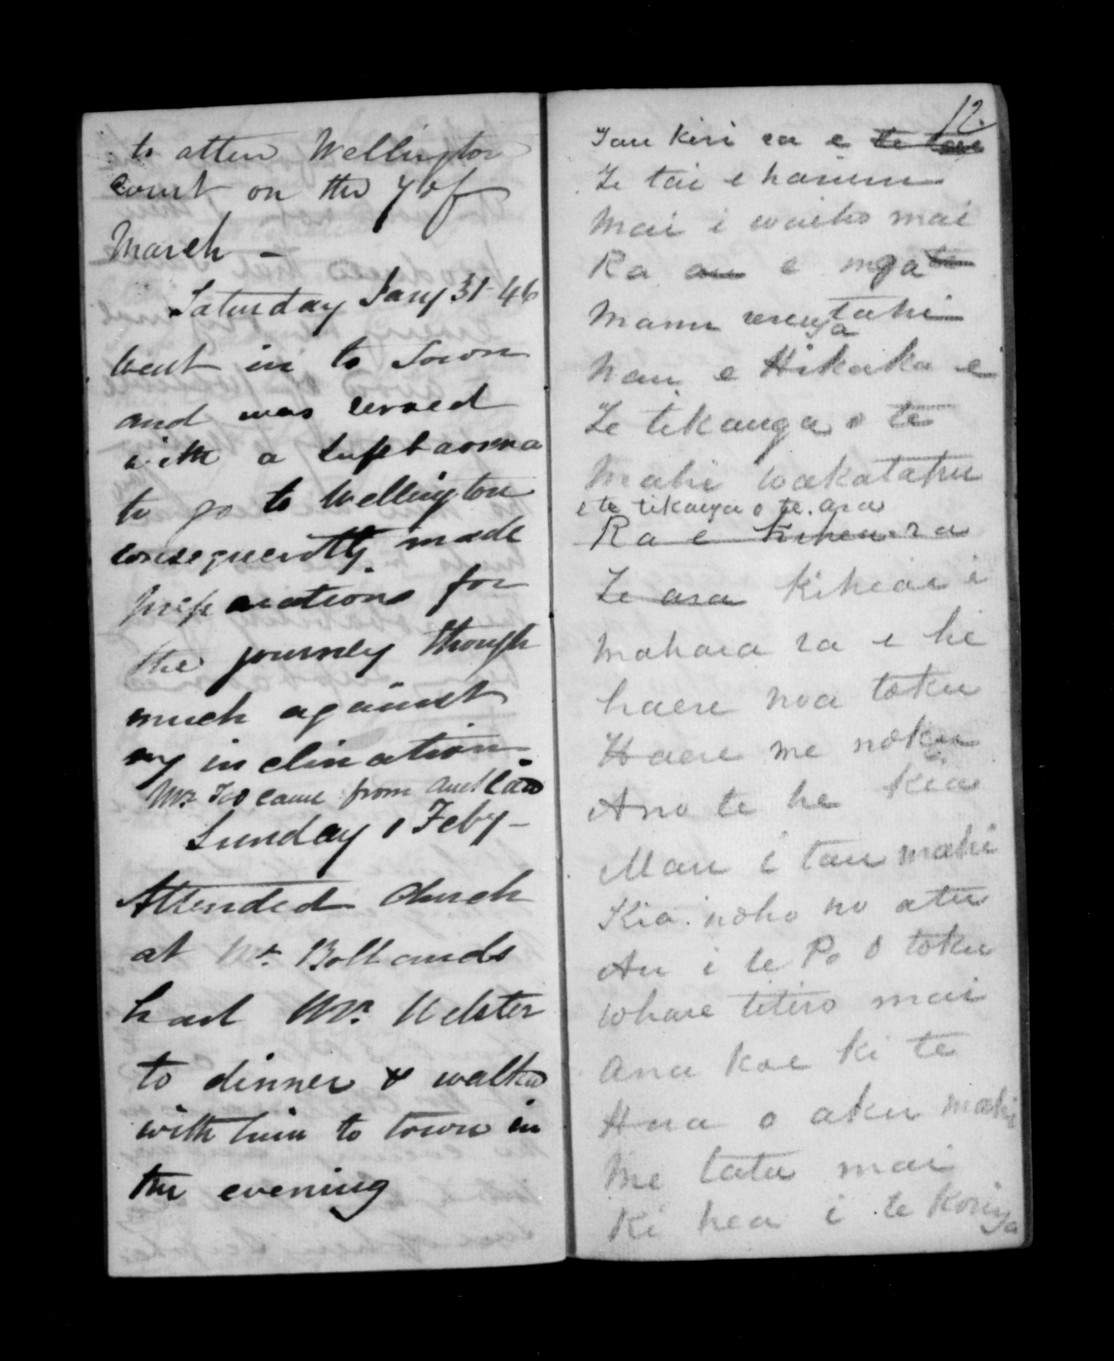 to atten Wellington
court on the 7 of
March —
Saturday Jany 31 46
went in to Town
and was served
with a Supbaonna
to go to Wellington
consequently made
preparations for
the journey though
much against
my inclination
Mr came from Auckland
Sunday 1 Feby —
Attended Church
at Mr Bollands
had Mr Webster
to dinner & walked
with him to town in
the evening
12.
Tau kiri ra e te
Te tai e
Mai i waiho mai
Ra au e mga
Manu tahi
hau e Hikaka e
Te tikanga o te
Mahi wakatahu
e te tikanga o te ara
Ra e ra
Te ara kiheai i
mahara ra e he
haere noa toku
Haere me noku
Ano te he kiai
Mau i tau mahi
Kia noho no atu
Au i te Po o toku
whare titiro mai
ana koe ki te
Hua o aku mahi
Me tatu mai
Ki hea i te Koringa